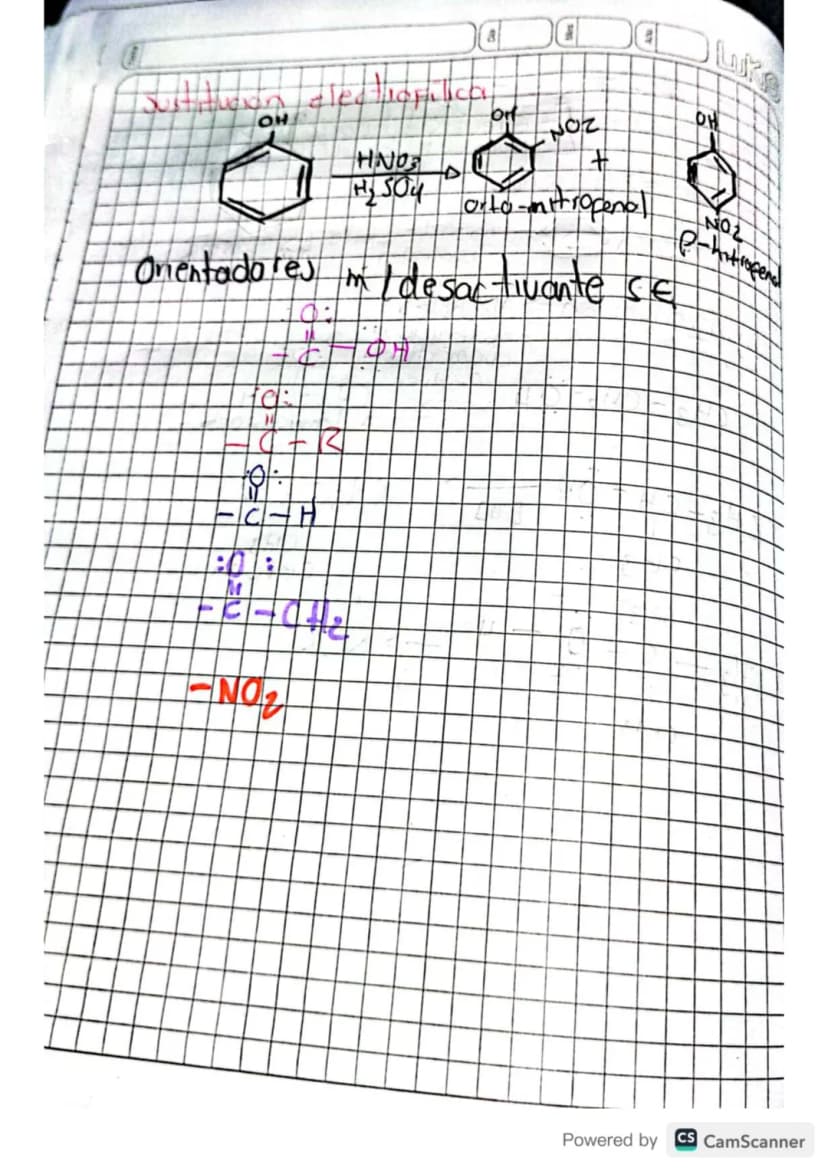 Luka
Sustitución electrofílica
OH
HNO3
H2SO4
OH
NO2
+
OH
NO2
orto-nitrofenol
p-nitrofenol
Orientadores m/desactivante SE
:O:
-C-OH
:O:
-C-R
:O:
-C-H
:O:
-C-CH2
-NO2
Powered by CS CamScanner